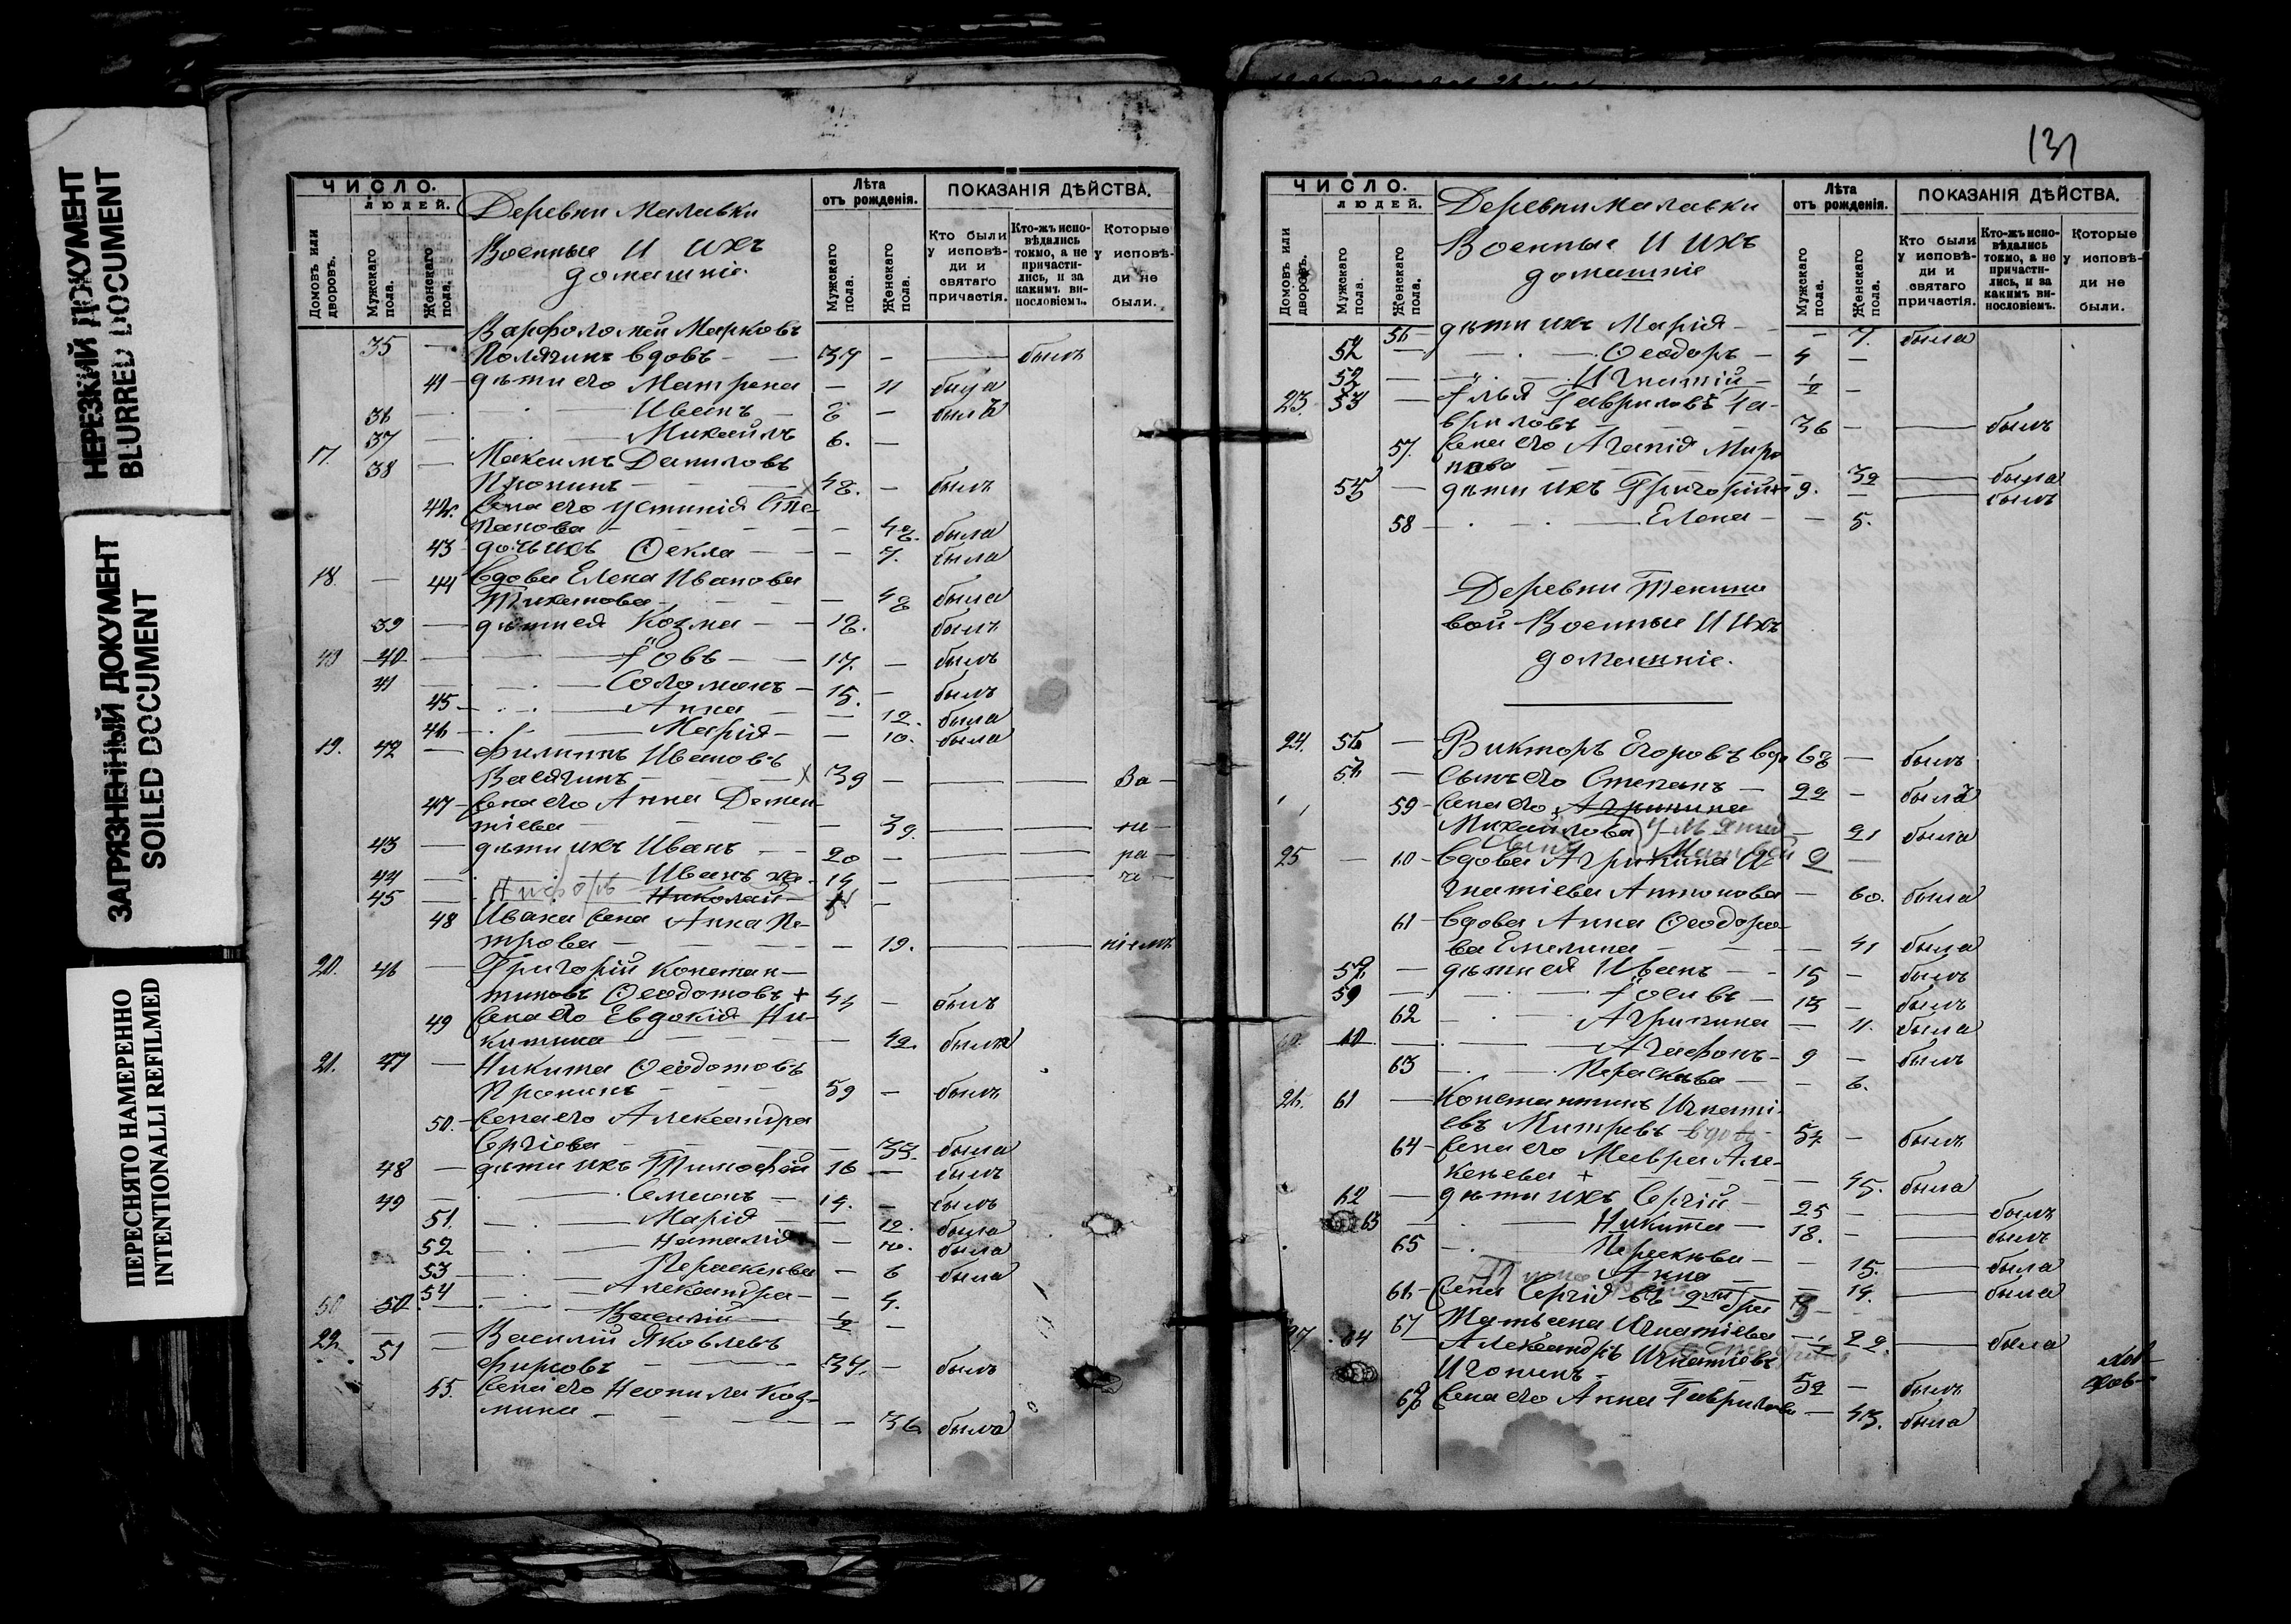 НЕРЕЗКИЙ ДОКУМЕНТ
BLURRED DOCUMENT
ЗАГРЯЗНЕННЫЙ ДОКУМЕНТ
SOILED DOCUMENT
ПЕРЕСНЯТО НАМЕРЕННО
INTENTIONALLI REFILMED
ЧИСЛО.
ЛЮДЕЙ.
Домовъ или дворовъ.
Мужскаго пола.
Женскаго пола.
Деревни Малавки
Военные И ихъ
домашніе.
Лѣта
отъ рожденія.
Мужскаго пола.
Женскаго пола.
ПОКАЗАНІЯ ДѢЙСТВА.
Кто были у исповѣ-ди и святаго причастія.
Кто-жъ испо-вѣдались токмо, а не причасти-лись, и за какимъ ви-нословіемъ.
Которые у исповѣ-ди не были.
35 — Варфоломей Марковъ
вдовъ — 37 — былъ
41 — дѣти его Матрена — 11 была
36 — Иванъ — 8 — былъ
37 — Михаилъ 6. —
17. 38 — Максимъ Даниловъ
Пронинъ — 48. — былъ
42. Жена его Устинія Сте-
панова — 48. была
43 — дочь ихъ Ѳекла — 7. была
18. — 44 Вдова Елена Иванова
— 48 была
39 — дѣти ея Козма — 18. былъ
40 — Іовъ — 17. — былъ
41 — Соломонъ — 15. — былъ
45 — Анна — 12. была
46 — Марія — 10. была
19. 42 — Филиппъ Ивановъ
— 39 — За —
47 — Жена его Анна Демен-
тіева — 39. — не —
43 — дѣти ихъ Иванъ — 20 — ра —
44 — Иванъ — 14 —
45 — Николай —
48 Ивана жена Анна Пе-
трова — 19. — ніемъ
20. 46 — Григорій Констан-
тиновъ Ѳеодотовъ + 44 — былъ
49 Жена его Евдокія Ни-
китина — 42. была
21. 47 — Никита Ѳеодотовъ
Пронинъ — 59 — былъ
50. — Жена его Александра
Сергіева — 33. была
48 — дѣти ихъ Тимофей 16 — былъ
49 — Симеонъ — 14. — былъ
51. — Марія — 12. была
52 — Наталія — 10. была
53 — Параскева — 6 была
54 — Александра — 4.
50 50. — Василій — 1/2 —
22. 51 — Василій Яковлевъ
Фирсовъ — 37. — былъ
55. Жена его Неонила Коз-
мина — 36 была
131
ЧИСЛО.
ЛЮДЕЙ.
Домовъ или дворовъ.
Мужскаго пола.
Женскаго пола.
Деревни Малавки
Военные И ихъ
домашніе
Лѣта
отъ рожденія.
Мужскаго пола.
Женскаго пола.
ПОКАЗАНІЯ ДѢЙСТВА.
Кто были у исповѣ-ди и святаго причастія.
Кто-жъ испо-вѣдались токмо, а не причасти-лись, и за какимъ ви-нословіемъ.
Которые у исповѣ-ди не были.
56 — дѣти ихъ Марія — 7. была
52 — Ѳеодоръ — 4 —
52 — Игнатій — 1/2 —
23. 53 — Илья Гавриловъ Га-
вриловъ — 36 — былъ
57. Жена его Агапія Миро
нова — 32 — была
— дѣти ихъ Григорій 9. — былъ
58 — Елена — 5.
Деревни
вой Военные И Ихъ
домашніе.
24. — Викторъ Егоровъ вдо 68 — былъ
— Сынъ его Степанъ — 22 — былъ
59 — Жена его Агрипина
Михайлова — 21 была
25 — 60 — Вдова Агрипина И-
гнатіева Антонова — 60. была
61 — Вдова Анна Ѳеодоро-
ва Емелина — 41 была
— дѣти ея Иванъ — 15 — былъ
59 — Іосивъ — 13 — былъ
62 — Агрипина — 11. была
60 — Агафонъ — 9 — былъ
63 — Параскева — 6.
26. 61 — Константинъ Игнаті-
евъ Митревъ вдовъ — былъ
64 — Жена его Мавра Але-
ксѣева + — 45. была
62 — дѣти ихъ Сергій — 25 — былъ
63 — Никита — 18. — былъ
65 — Параскева — 15. — была
Анна — 14. — была
66 — Жена Сергія
67 Татьяна Игнатіева — 22. — была
27 64 — Александръ Игнатіевъ
— 52 — былъ
68 Жена его Анна Гаврилова — 43. была